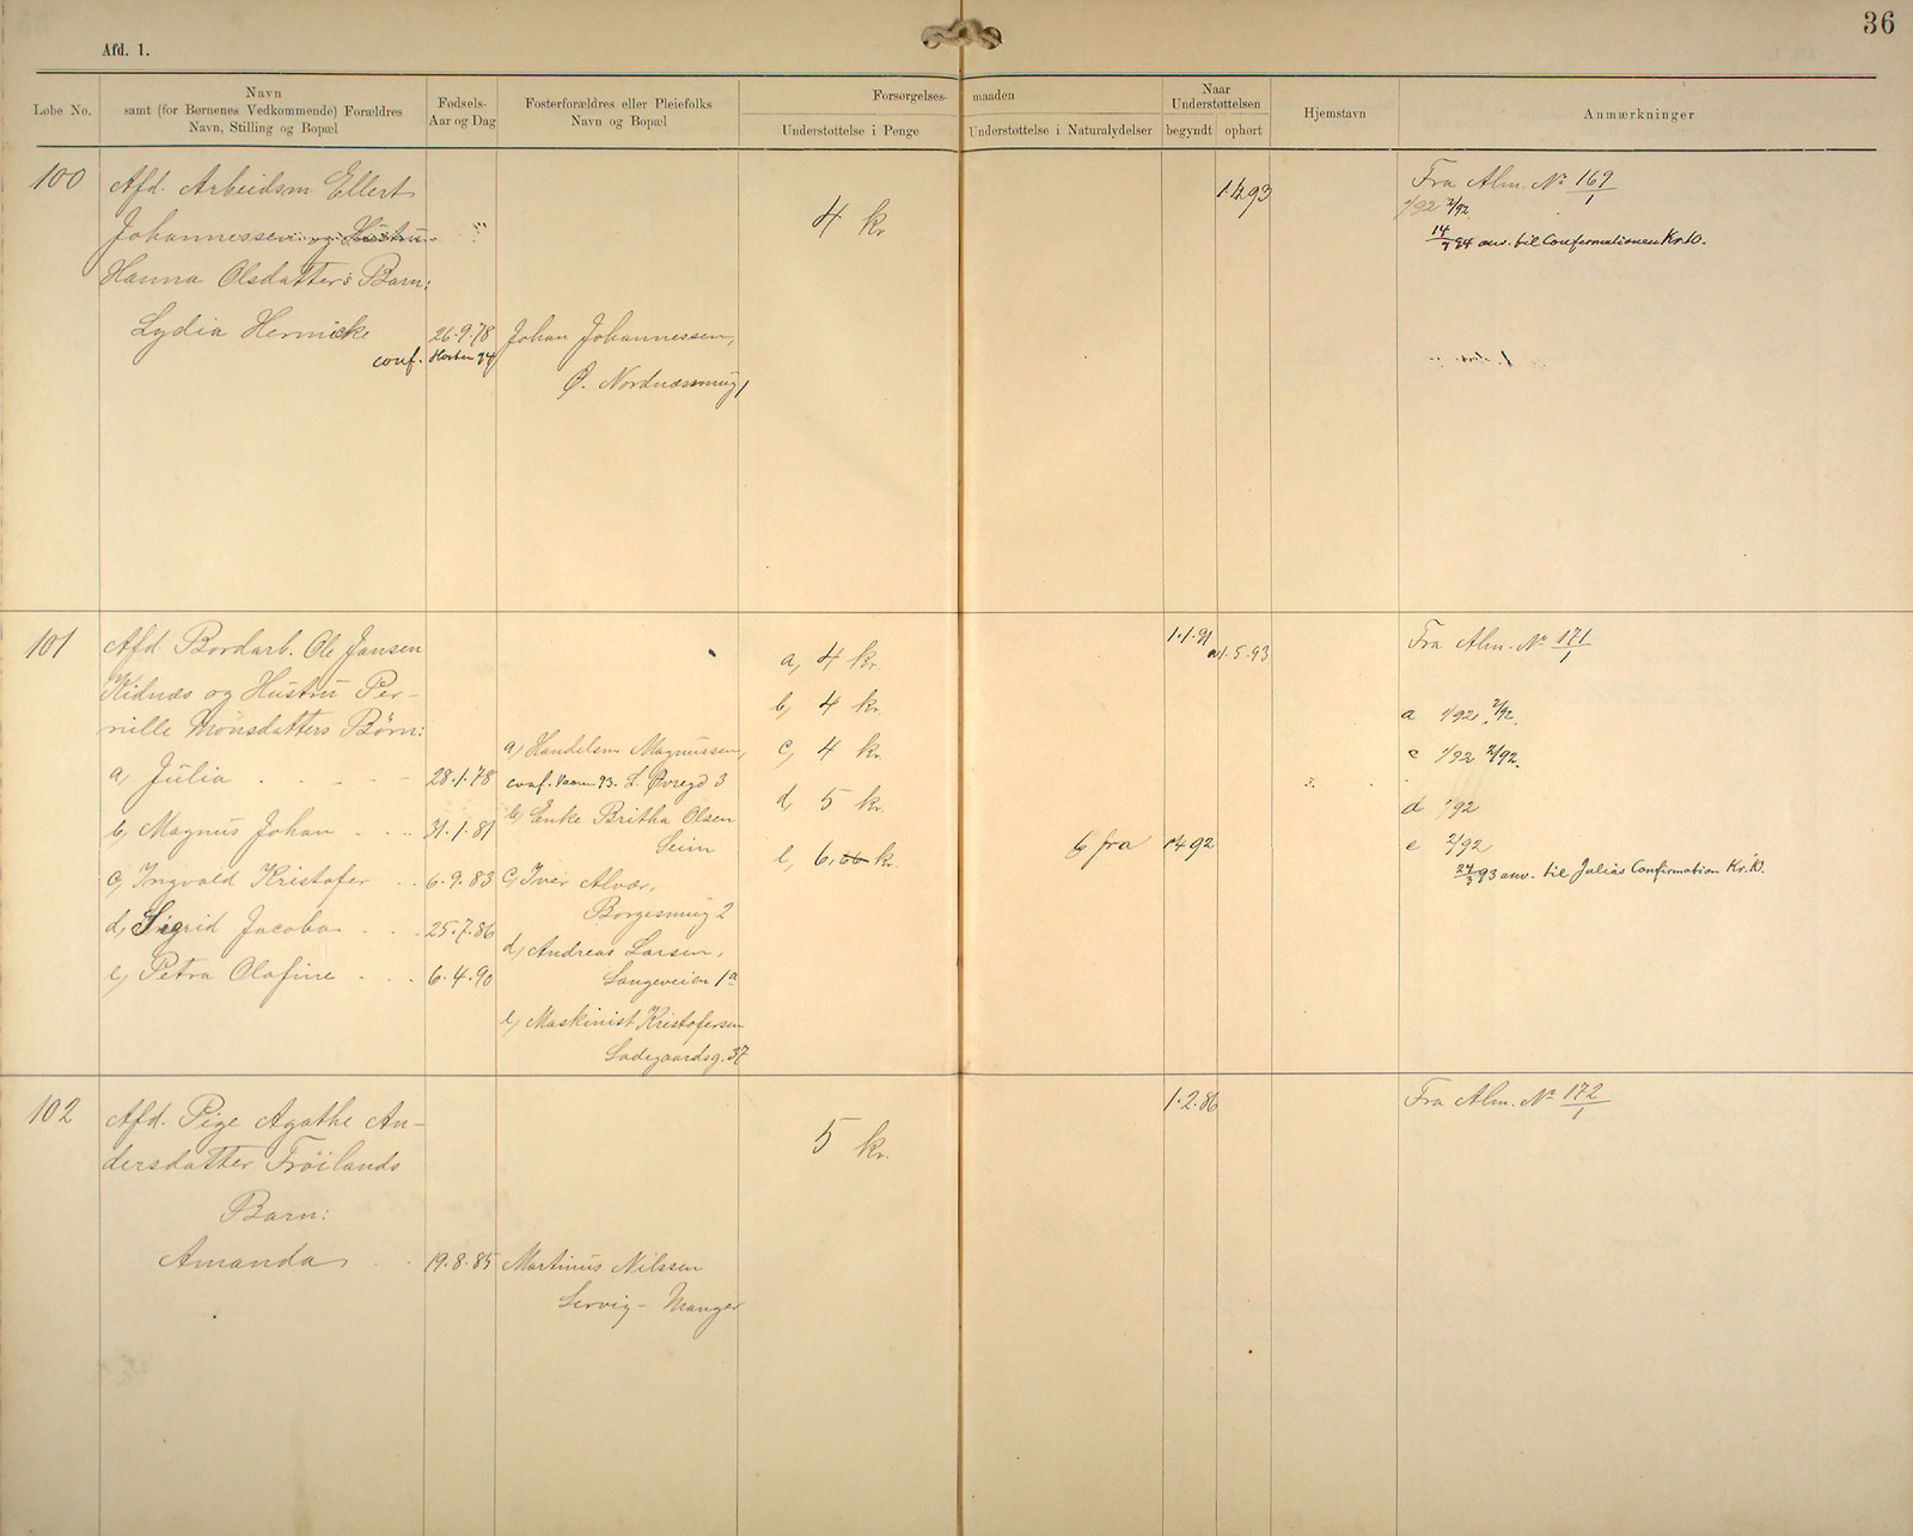 36
Afd. 1.
Løbe No.
Navn
samt (for Børnenes Vedkommende) Forældres
Navn, Stilling og Bopæl
Fødsels-
Aar og Dag
Fosterforældres eller Pleiefolks
Navn og Bopæl
Forsørgelses-
maaden
Understøttelse i Penge
Understøttelse i Naturalydelser
Naar
Understøttelsen
begyndt
ophørt
Hjemstavn
Anmærkninger
100
Afd. Arbeidsm. Ellert
Johannessen og Hustru
Hanna Olsdatters Barn:
Lydia Hernicke
conf.
26.9.78
Høsten 94
Johan Johannessen,
Ø. Nordnæssmug,
4 kr
Fra Alm. No 169/1
1/92 2/92
14/9 94 anv. til Confirmationen Kr. 10.
101
Afd. Bordarb. Ole Jansen
Kidnæs og Hustru Per-
nille Monsdatters Børn:
a, Julia
28.1.78
b, Magnus Johan
31.1.81
c, Ingvald Kristofer
6.9.83
d, Sigrid Jacoba
25.7.86
e, Petra Olafine
6.4.90
a, Handelsm. Magnussen,
conf. Vaaren 93. L. Øvregd 3
b, Enke Britha Olsen
Seim
c, Iver Alvær,
Borgesmug 2
d, Andreas Larsen,
Langeveien 1a
e, Maskinist Kristofersen
Ladegaardsg. 37
a, 4 kr.
b, 4 kr.
c, 4 kr.
d, 5 kr.
e, 6, kr.
b fra
1.1.91
a 1.5.93
Fra Alm. No 171/1
a 1/92, 2/92.
c 1/92 2/92.
d 1/92
e 2/92
24/3 93 anv. til Julias Confirmation Kr. 10.
102
Afd. Pige Agathe An-
dersdatter Frøilands
Barn:
Amanda
19.8.85
Martinus Nilssen
Servig - Manger
5 kr.
1.2.86
Fra Alm. No 172/1